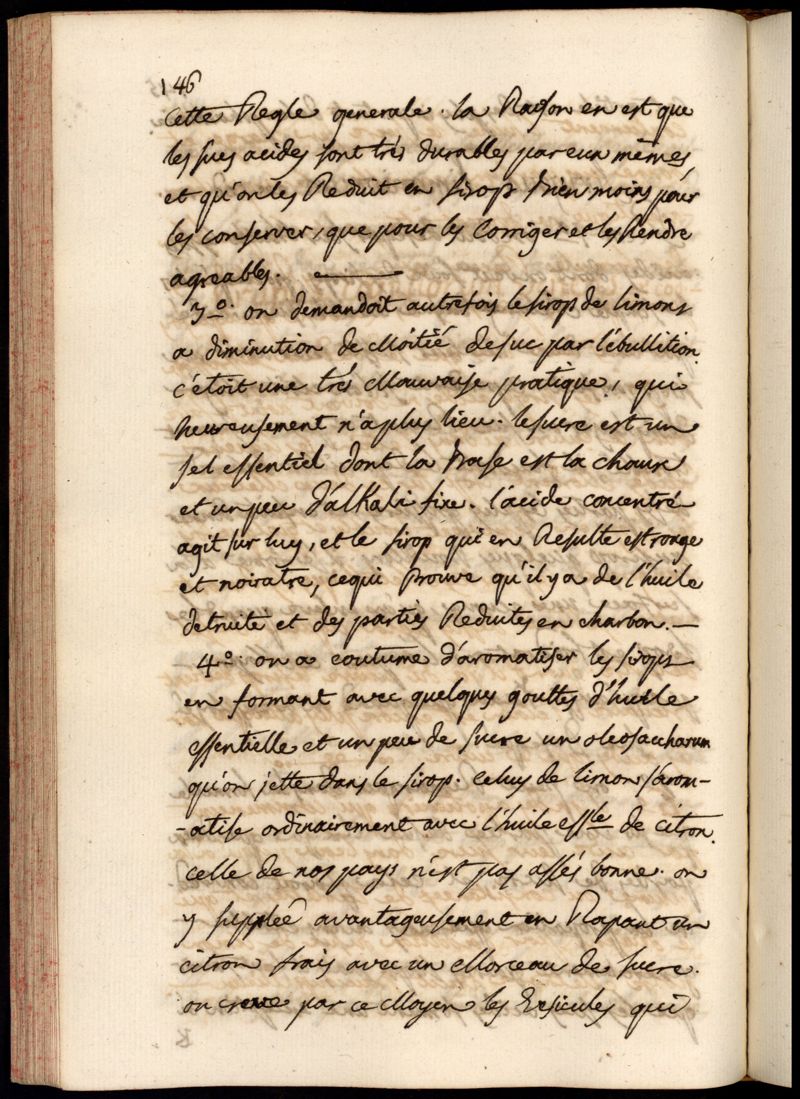 146
cette Regle generale. la Raison en est que
les sucs acides sont trés durables par eux mèmes,
et qu'on les Reduit en sirop bien moins pour
les conserver, que pour les Corriger et les Rendre
agreables. —
3º. on demandoit autrefois le sirop de limons
a diminution de Moitié de suc par l'ébullition.
c'étoit une trés Mauvaise pratique, qui
heureusement n'a plus lieu. le sucre est un
sel essentiel dont la base est la chaux
et un peu d'alkali fixe. l'acide concentré
agit sur luy, et le sirop qui en Resulte est rouge
et noiratre, ce qui prouve qu'il y a de l'huile
detruite et des parties Reduites en charbon. —
4º. on a coutume d'aromatiser les sirops
en formant avec quelques gouttes d'huile
essentielle et un peu de sucre un oleosaccharum
qu'on jette dans le sirop. celuy de limon s'arom-
-atise ordinairement avec l'huile essle de citron.
celle de nos pays n'est pas assés bonne. on
y supplée avantageusement en Rapant un
citron frais avec un Morceau de sucre.
on creve par ce Moyen les vesicules qui